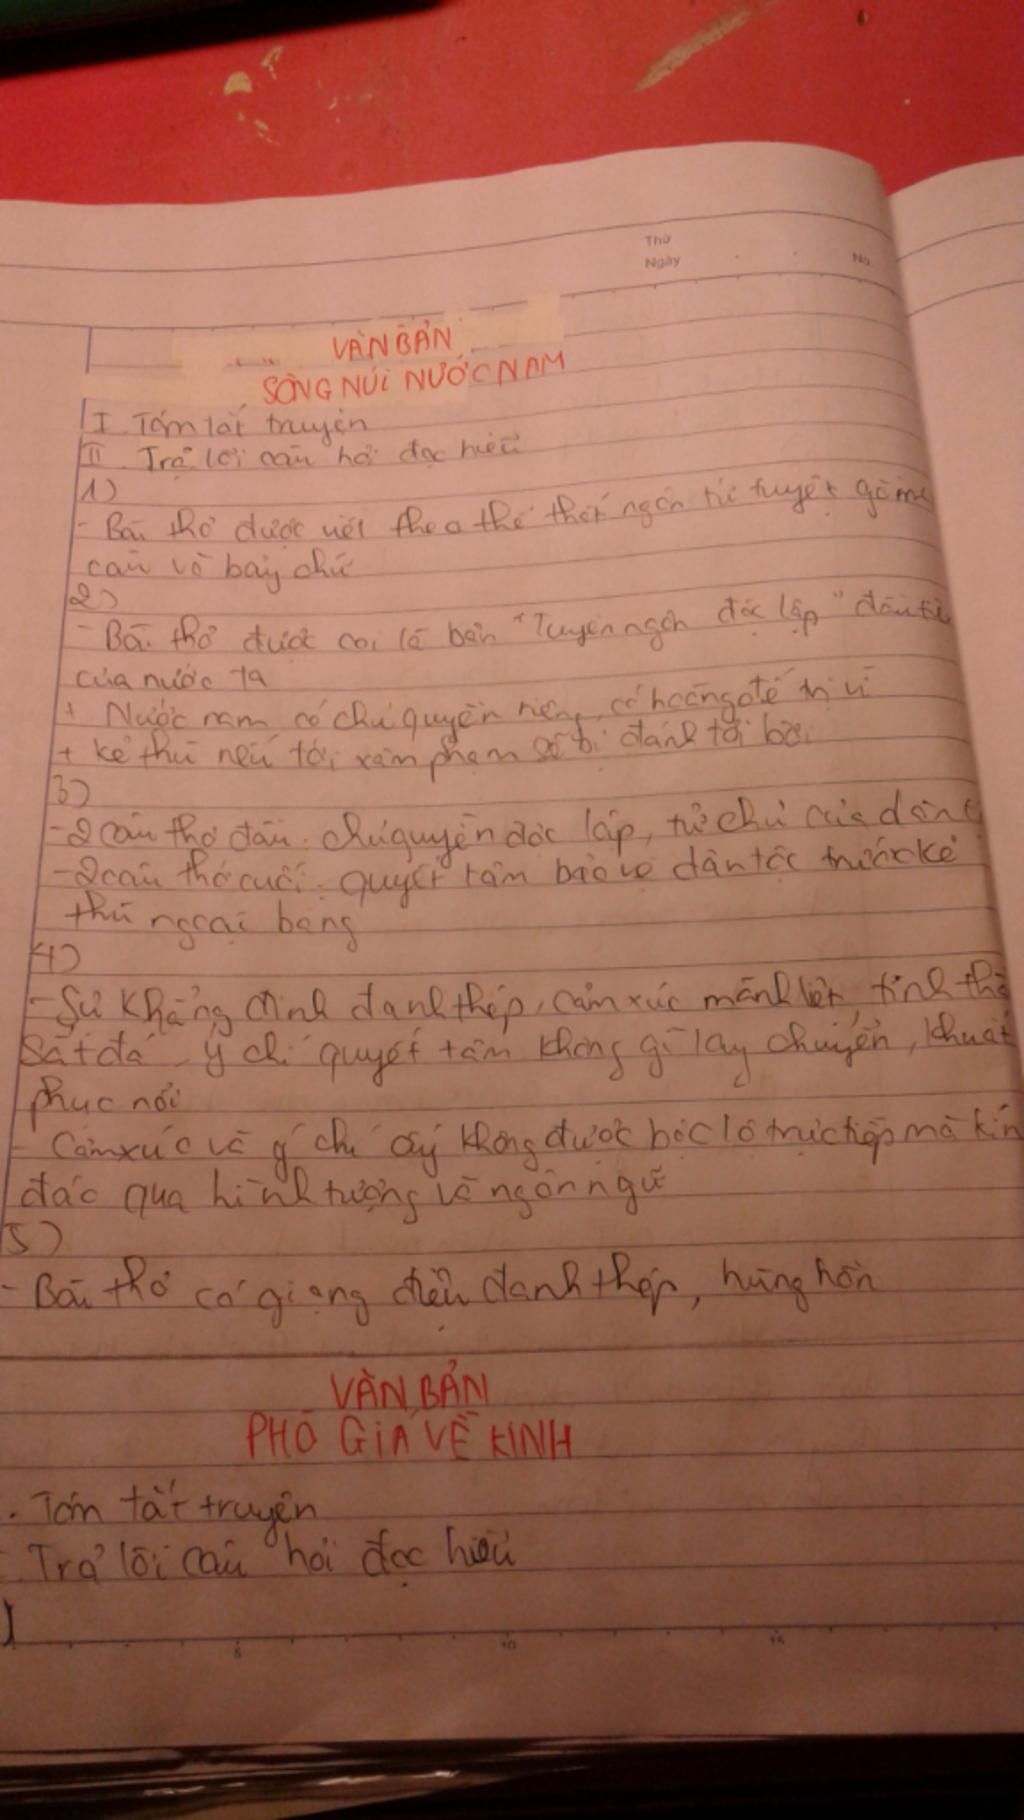 Thứ
Ngày No
VĂN BẢN
SÔNG NÚI NƯỚC NAM
I. Tóm tắt truyện
II. Trả lời câu hỏi đọc hiểu
1)
- Bài thơ được viết theo thể thất ngôn tứ tuyệt gồm
câu và bảy chữ
2)
- Bài thơ được coi là bản "Tuyên ngôn độc lập" đầu
của nước ta
+ Nước nam có chủ quyền riêng, có hoàng đế trị vì
+ kẻ thù nếu tới xâm phạm sẽ bị đánh tơi bời
3)
- 2 câu thơ đầu: chủ quyền độc lập, tự chủ của dân
- 2 câu thơ cuối: quyết tâm bảo vệ dân tộc trước kẻ
thù ngoại bang
4)
- Sự khẳng định đanh thép, cảm xúc mãnh liệt, tinh
sắt đá, ý chí quyết tâm không gì lay chuyển, khuất
phục nổi
- Cảm xúc và ý chí ấy không được bộc lộ trực tiếp mà kín
đáo qua hình tượng và ngôn ngữ
5)
- Bài thơ có giọng điệu đanh thép, hùng hồn
VĂN BẢN
PHÒ GIÁ VỀ KINH
. Tóm tắt truyện
. Trả lời câu hỏi đọc hiểu
5 10 15